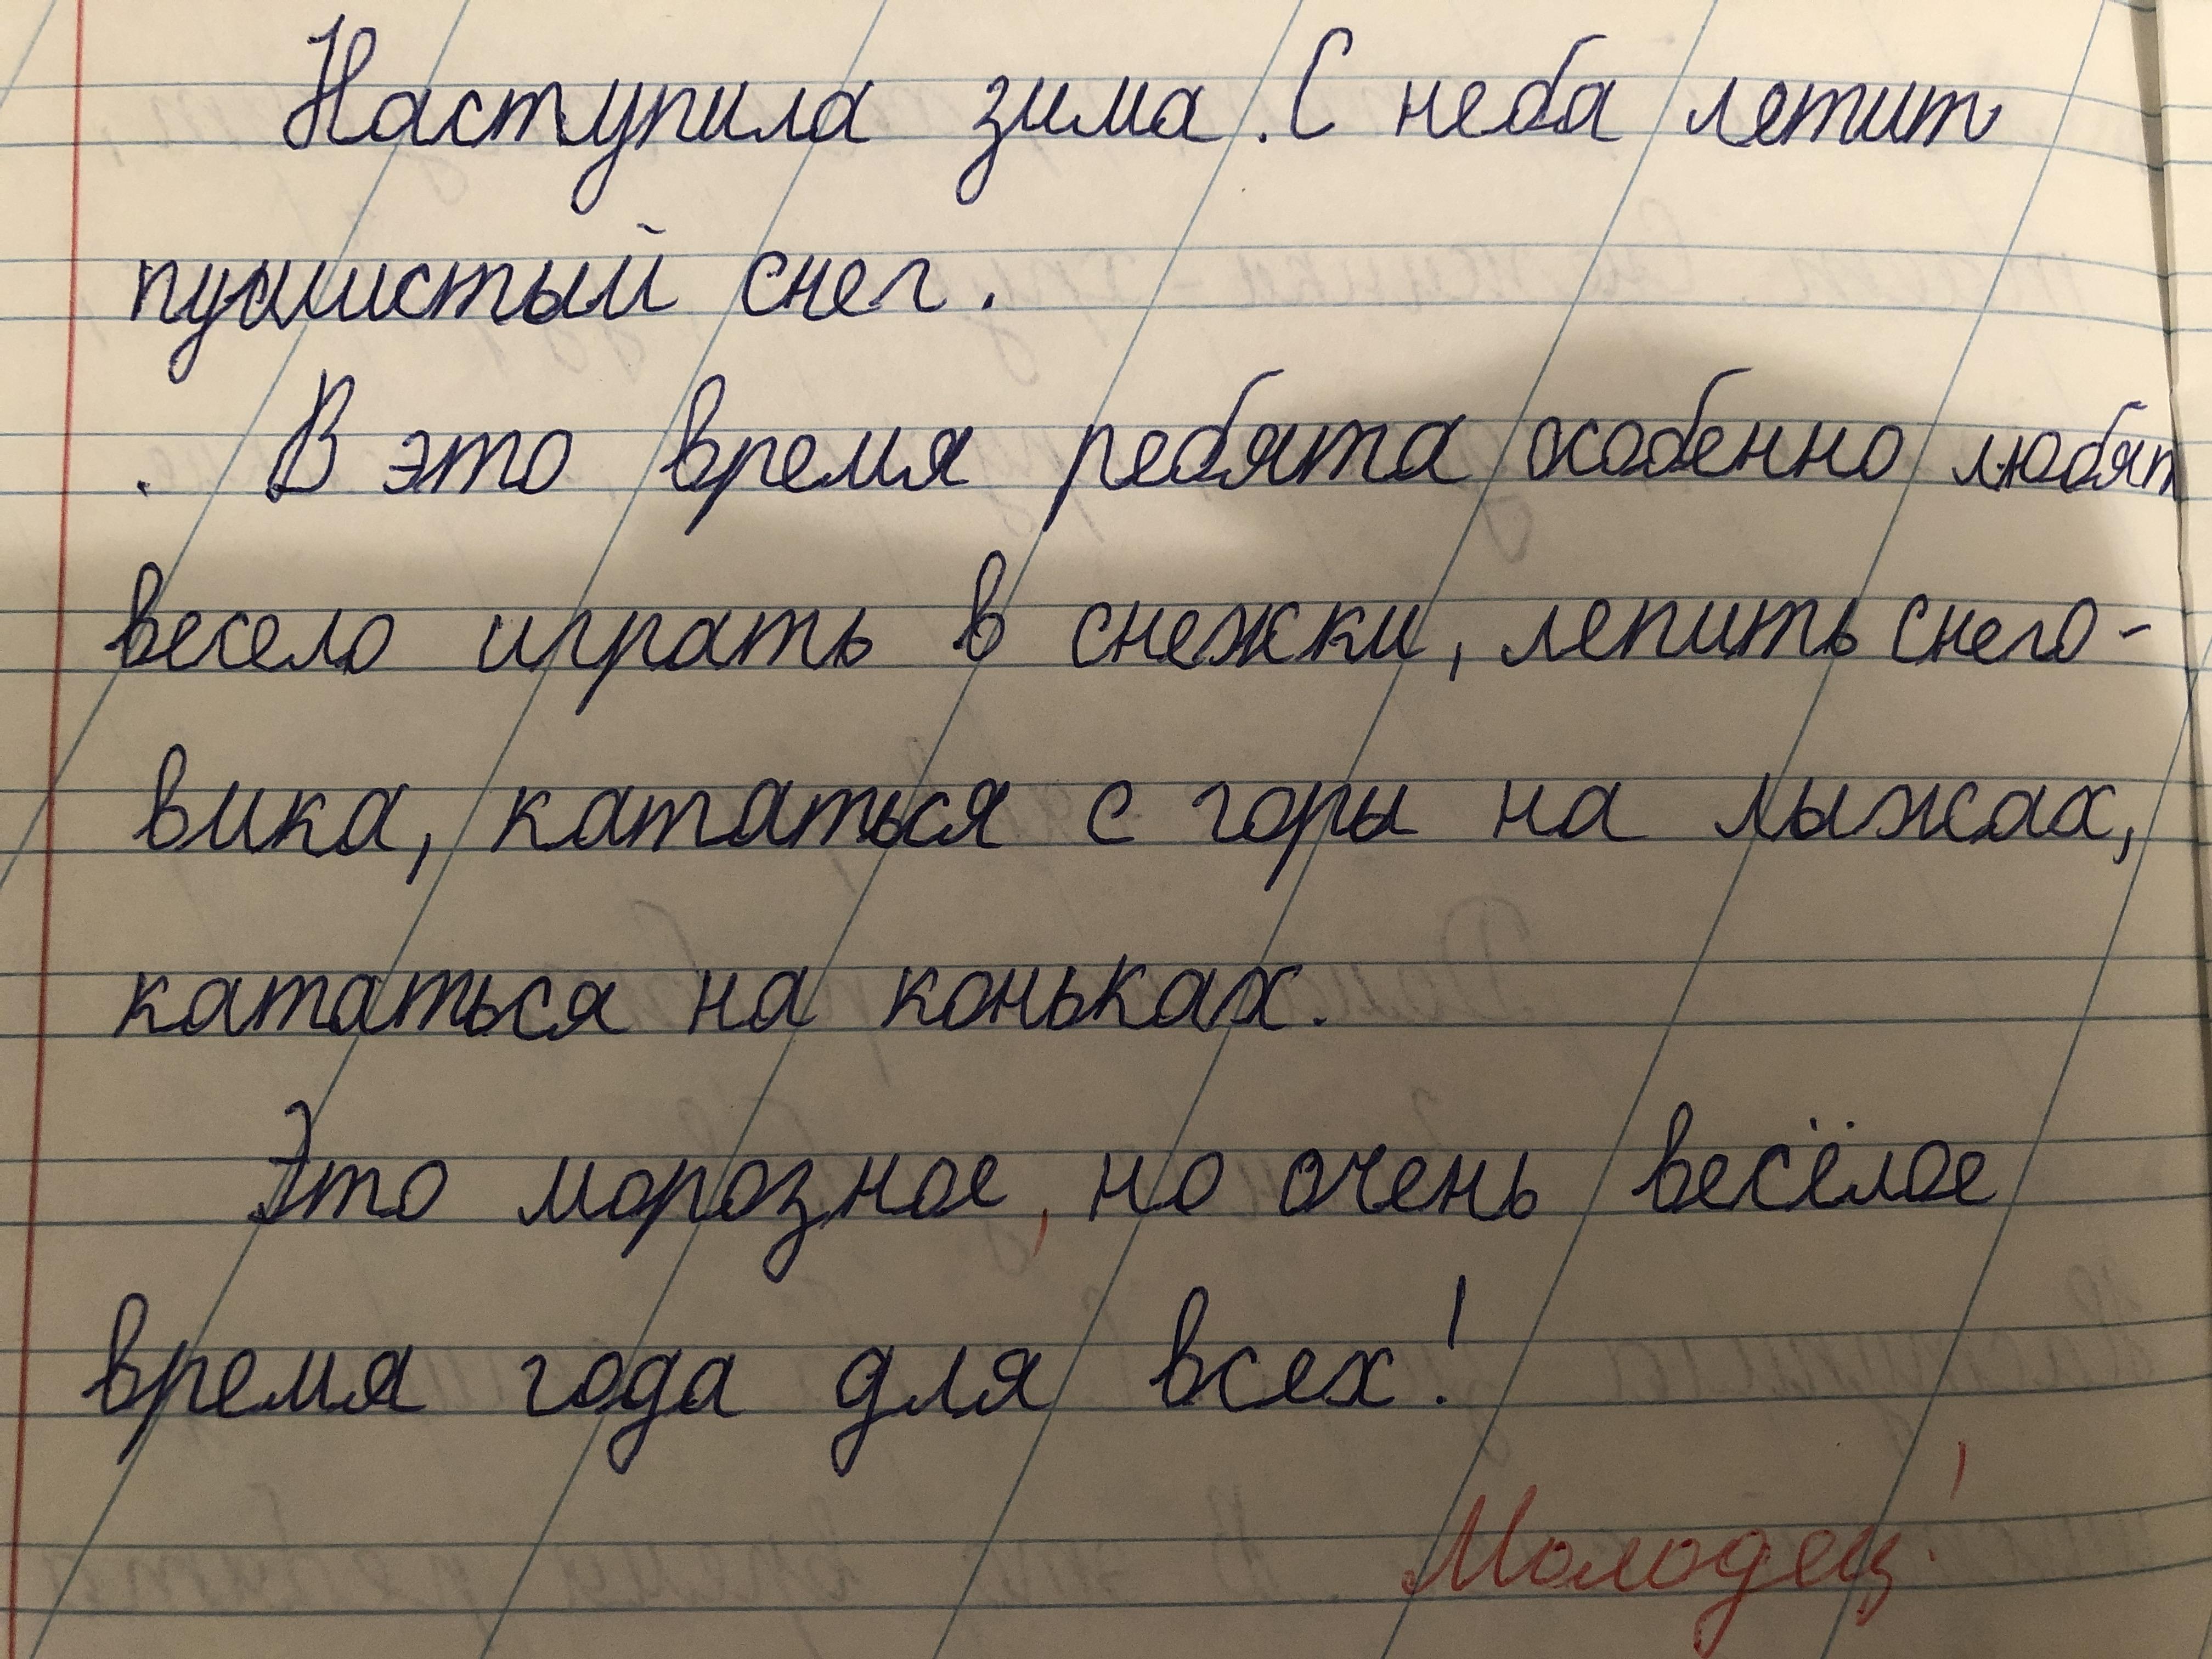 Наступила зима. С неба летит
пушистый снег.
. В это время ребята особенно любят
весело играть в снежки, лепить снего-
вика, кататься с горы на лыжах,
кататься на коньках.
Это морозное, но очень весёлое
время года для всех!
Молодец!